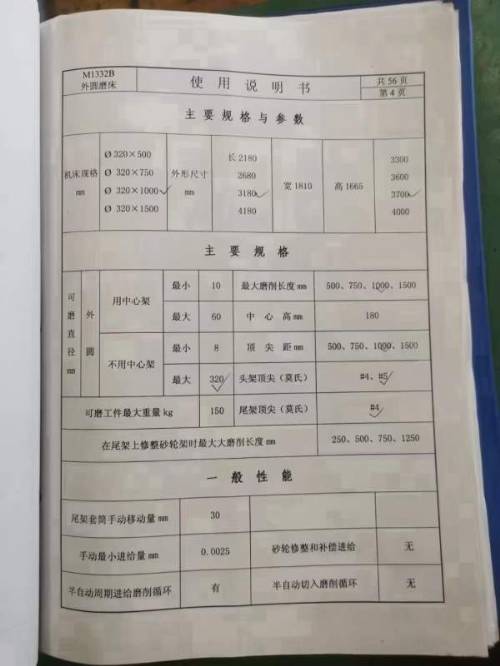 M1332B
外圆磨床
使用说明书
共 56 页
第 4 页
主要规格与参数
机床规格 mm
Ø 320×500
Ø 320×750
Ø 320×1000 ✓
Ø 320×1500
外形尺寸 mm
长 2180
2680
3180 ✓
4180
宽 1810
高 1665
3300
3600
3700 ✓
4000
主要规格
可磨直径 mm
外圆
用中心架
最小 10 最大磨削长度 mm 500、750、1000、1500
最大 60 中心高 mm 180
不用中心架
最小 8 顶尖距 mm 500、750、1000、1500
最大 320 ✓ 头架顶尖(莫氏) #4、#5 ✓
可磨工件最大重量 kg 150 尾架顶尖(莫氏) #4 ✓
在尾架上修整砂轮架时最大大磨削长度 mm 250、500、750、1250
一般性能
尾架套筒手动移动量 mm 30
手动最小进给量 mm 0.0025 砂轮修整和补偿进给 无
半自动周期进给磨削循环 有 半自动切入磨削循环 无